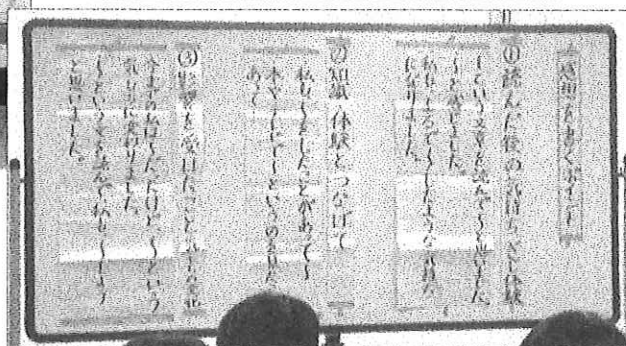 感想を書くポイント
①読んだ後の気持ち、
〜という文章を読んで〜と思いました。
〜を感じました。
私も、まるで〜したような気持ち
になりました。
②知識、体験とつなげて
私も〜をしたことがあって〜
本や〜で〜というのを見た
あって
③影響を受けたこと、
今までの私は〜だったけど、〜という
気持ちに変わりました。
〜という文を読んで、私も〜しよう
と思いました。